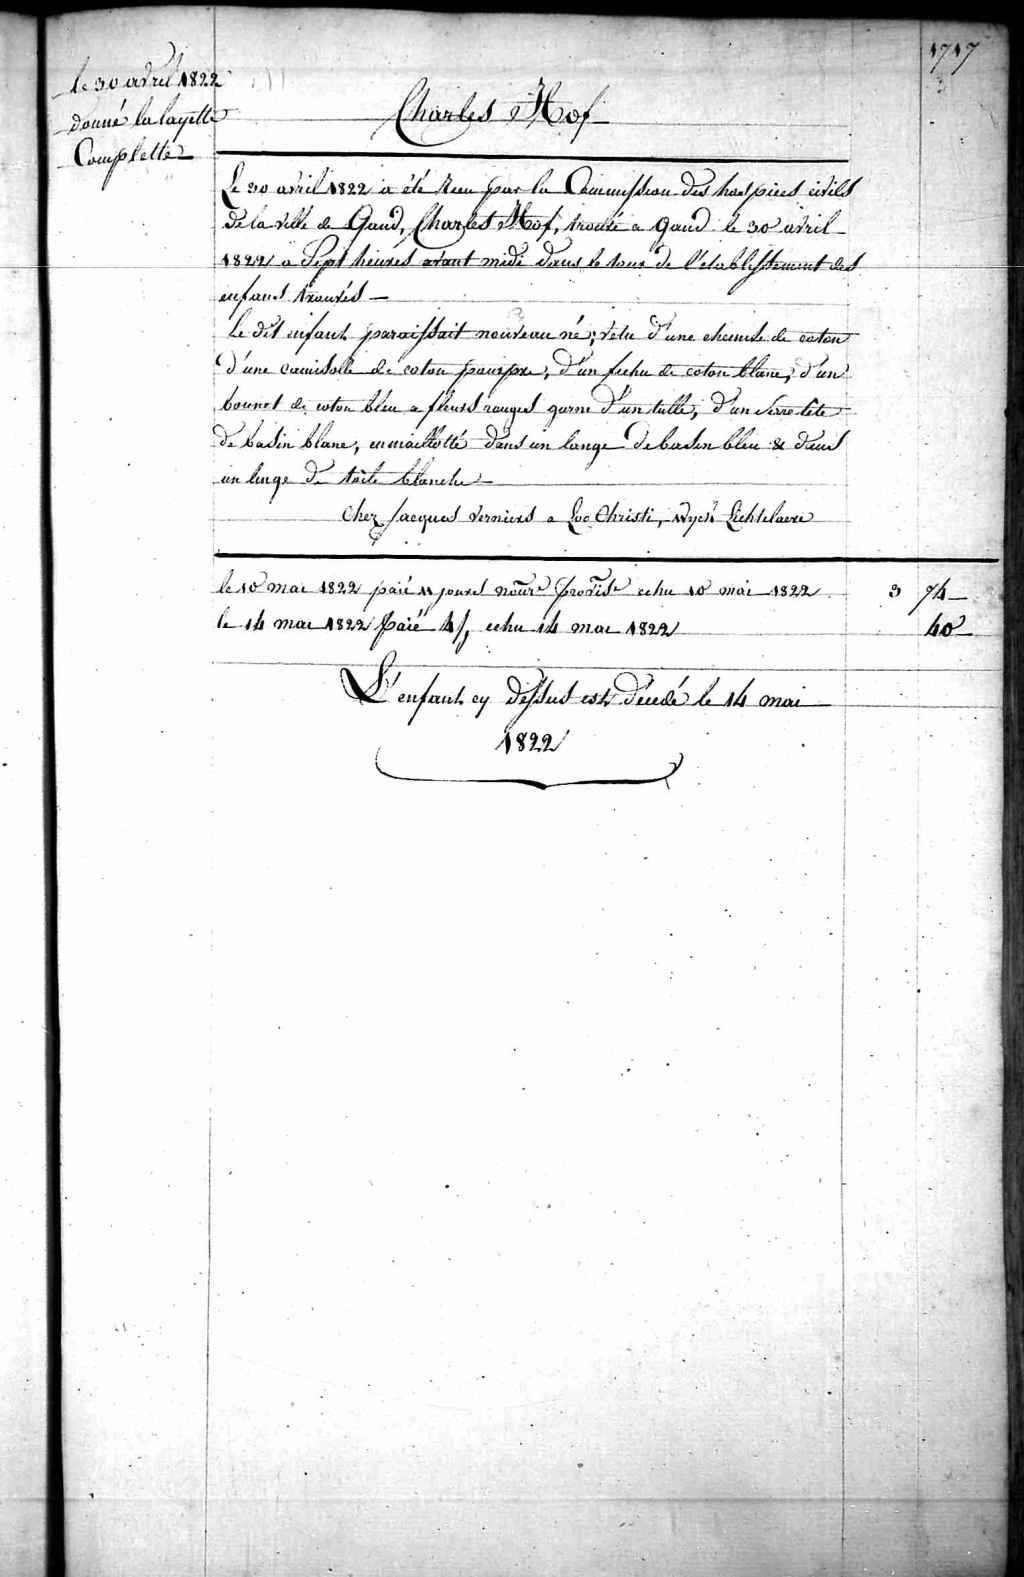 1717
le 30 avril 1822
donné la layette
Complette
Charles Hof
Le 30 avril 1822 a été Recu par la Commission des hospices civils
de la ville de Gand, Charles Hof, trouvé a gand le 30 avril
1822 a Sept heures avant midi dans le tour de l'etablissement des
enfans trouvés
Le dit enfant paraissait nouveau né; vetu d'une chemise de coton
d'une camisolle de coton pourpre, d'un fichu de coton blanc, d'un
bonnet de coton bleu a fleurs rouges garni d'un tulle, d'un Serre tête
de basin blanc, emmaillotté dans un lange de basin bleu & dans
un linge de toile blanche
Chez Jacques Verniers a Loo Christi, Wyck Lichtelaere
le 10 mai 1822 paié 11 jours nourre provise echu 10 mai 1822 3 74
le 14 mai 1822 Paié 4/j echu 14 mai 1822 40
L'enfant cy dessus est décedé le 14 mai
1822